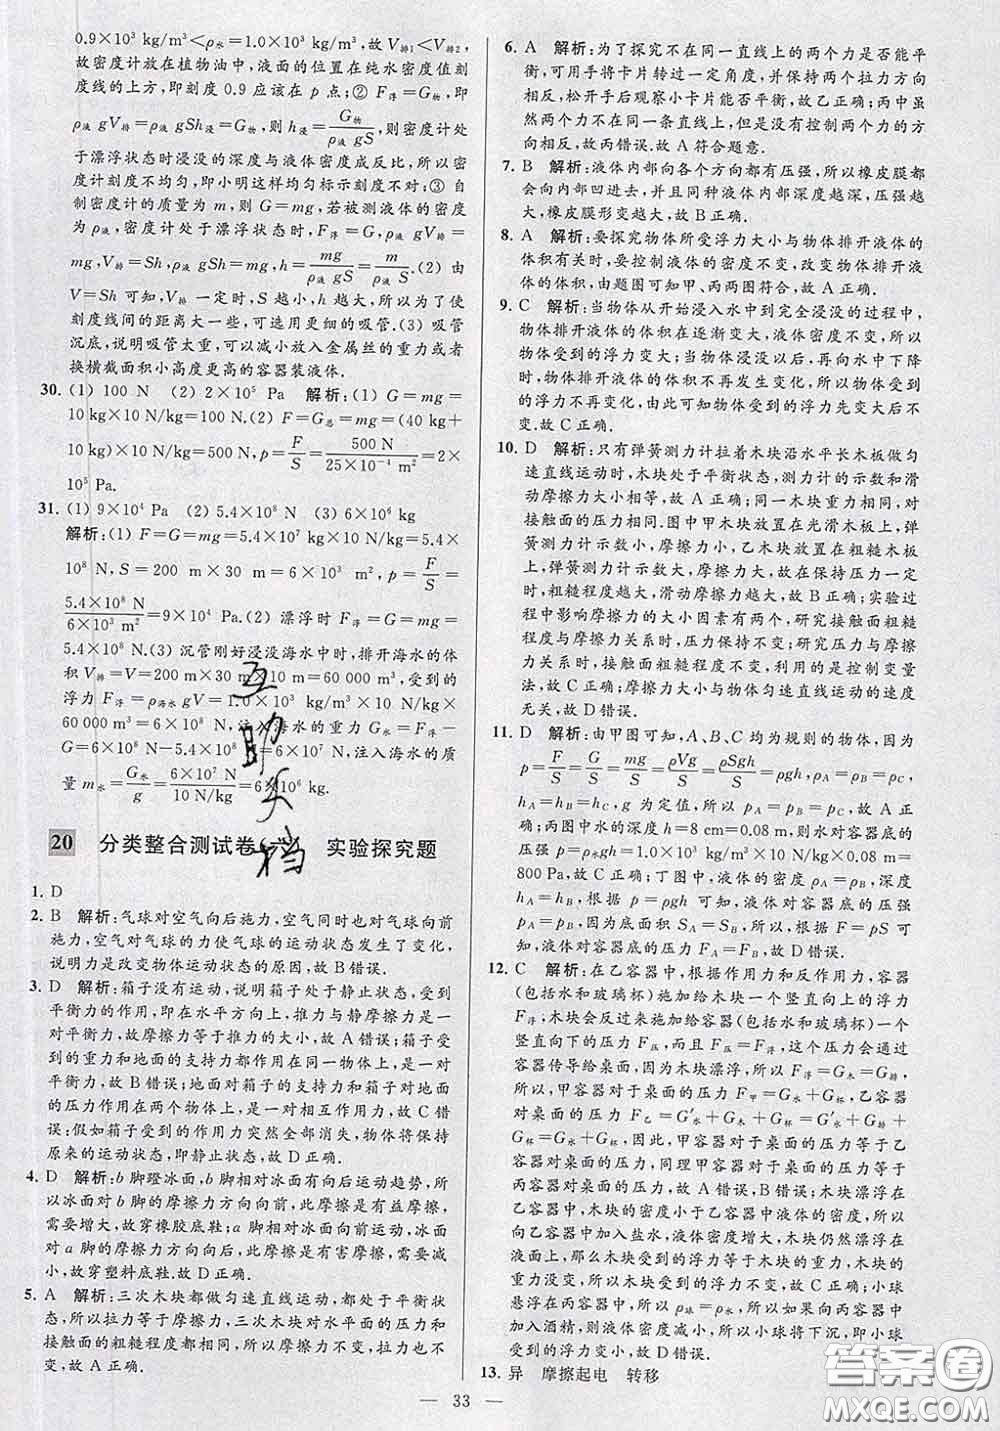 0.9×10³ kg/m³<ρ水=1.0×10³ kg/m³,故 V排1<V排2,
故密度计放在植物油中,液面的位置在纯水密度值刻
度线的上方,即刻度 0.9 应该在 p 点;② F浮=G物,即
ρ液 gV排=ρ液 gSh浸=G物,则 h浸=G物/ρ液 gS,则密度计处
于漂浮状态时浸没的深度与液体密度成反比,所以密
度计刻度不均匀,即小明这样均匀标示刻度不对;③ 自
制密度计的质量为 m,则 G=mg,若被测液体的密度
为 ρ液,密度计处于漂浮状态时,F浮=G,ρ液 gV排=
mg,V排=Sh,ρ液 gSh=mg,h=mg/ρ液 gS=m/ρ液 S.(2) 由
V=Sh 可知,V排 一定时,S 越小,h 越大,所以为了使
刻度线间的距离大一些,可以选用更细的吸管.(3) 吸管
沉底,说明吸管太重,可以减小放入金属丝的重力或者
换横截面积小高度更高的容器装液体.
30. (1) 100 N (2) 2×10⁵ Pa 解析:(1) G=mg=
10 kg×10 N/kg=100 N.(2) F=G总=mg=(40 kg+
10 kg)×10 N/kg=500 N,p=F/S=500 N/25×10⁻⁴ m²=2×
10⁵ Pa.
31. (1) 9×10⁴ Pa (2) 5.4×10⁸ N (3) 6×10⁶ kg
解析:(1) F=G=mg=5.4×10⁷ kg×10 N/kg=5.4×
10⁸ N,S=200 m×30 m=6×10³ m²,p=F/S=
5.4×10⁸ N/6×10³ m²=9×10⁴ Pa.(2) 漂浮时 F浮=G=mg=
5.4×10⁸ N.(3) 沉管刚好浸没海水中时,排开海水的体
积 V排=V=200 m×30 m×10 m=60 000 m³,受到的
浮力 F浮=ρ海水 gV=1.0×10³ kg/m³×10 N/kg×
60 000 m³=6×10⁸ N,注入海水的重力 G水=F浮−
G=6×10⁸ N−5.4×10⁸ N=6×10⁷ N,注入海水的质
量 m水=G水/g=6×10⁷ N/10 N/kg=6×10⁶ kg.
20 分类整合测试卷(六) 实验探究题
1. D
2. B 解析:气球对空气向后施力,空气同时也对气球向前
施力,空气对气球的力使气球的运动状态发生了变化,
说明力是改变物体运动状态的原因,故 B 错误.
3. D 解析:箱子没有运动,说明箱子处于静止状态,受到
平衡力的作用,即在水平方向上,推力与静摩擦力是一
对平衡力,故摩擦力等于推力的大小,故 A 错误;箱子受
到的重力和地面的支持力都作用在同一物体上,是一对
平衡力,故 B 错误;地面对箱子的支持力和箱子对地面
的压力作用在两个物体上,是一对相互作用力,故 C 错
误;假如箱子受到的作用力突然全部消失,物体将保持
原来的运动状态,即静止状态,故 D 正确.
4. D 解析:b 脚蹬冰面,b脚相对冰面有向后运动趋势,所
以冰面对 b 脚的摩擦力方向向前,此摩擦是有益摩擦,
需要增大,故穿橡胶底鞋;a 脚相对冰面向前运动,冰面
对 a 脚的摩擦力方向向后,此摩擦是有害摩擦,需要减
小,故穿塑料底鞋.故 D 正确.
5. A 解析:三次木块都做匀速直线运动,都处于平衡状
态,所以拉力等于摩擦力,三次木块对水平面的压力与
接触面的粗糙程度都不变,所以摩擦力不变,拉力也不
变,故 A 正确.
6. A 解析:为了探究不在同一直线上的两个力是否能平
衡,可用手将卡片转过一定角度,并且保持两个拉力方向
相反,松开手后观察小卡片能否平衡,故乙正确;丙中虽
然两个力不在同一条直线上,但是没有控制两个力的方
向相反,故丙错误.故 A 符合题意.
7. B 解析:液体内部向各个方向都有压强,所以橡皮膜都
会向内部凹进去,并且同种液体内部深度越深,压强越
大,橡皮膜形变越大,故 B 正确.
8. A 解析:要探究物体所受浮力大小与物体排开液体的
体积有关时,要控制液体的密度不变,改变物体排开液
体的体积,由题图可知甲、丙两图符合,故 A 正确.
9. C 解析:当物体从开始浸入水中到完全浸没的过程中,
物体排开液体的体积在逐渐变大,液体密度不变,所以
物体受到的浮力变大;当物体浸没以后,再向水中下降
时,物体排开液体的体积不再发生变化,所以物体受到
的浮力不再变化,由此可知物体受到的浮力先变大后不
变,故 C 正确.
10. D 解析:只有弹簧测力计拉着木块沿水平长木板做匀
速直线运动时,木块处于平衡状态,测力计的示数和滑
动摩擦力大小相等,故 A 正确;同一木块重力相同,即
对接触面的压力相同.图中甲木块放置在光滑木板上,弹
簧测力计示数小,摩擦力小,乙木块放置在粗糙木板
上,弹簧测力计示数大,摩擦力大,故在保持压力一定
时,接触面越粗糙,滑动摩擦力越大,故 B 正确;实验过
程中影响摩擦力的大小因素有两个,研究接触面粗糙
程度与摩擦力关系时,压力保持不变;研究压力与摩擦
力关系时,接触面粗糙程度不变,利用的是控制变量
法,故 C 正确;摩擦力大小与物体匀速直线运动的速度
无关,故 D 错误.
11. D 解析:由甲图可知,A、B、C 均为规则的物体,因为
p=F/S=G/S=mg/S=ρVg/S=ρSgh/S=ρgh,ρA=ρB=ρC,
hA=hB=hC,g 取定值,所以 pA=pB=pC,故 A、B 正
确;丙图中水的深度 h=8 cm=0.08 m,所以水对容器底
的压强 p=ρ水gh=1×10³ kg/m³×10 N/kg×0.08 m=
800 Pa,故 C 正确;丁图中,液体的密度 ρA=ρB,深度
hA=hB,根据 p=ρgh 可知,液体对容器底的压强
pA=pB,因为底面积 SA=SB,所以,根据 F=pS 可
知,液体对容器底的压力 FA=FB,故 D 错误.
12. C 解析:在乙容器中,根据作用力和反作用力,容器
(包括水和玻璃杯)施加给木块一个竖直向上的浮力
F浮,木块会反过来施加给容器(包括水和玻璃杯)一个
竖直向下的压力 F压,而且 F压=F浮,这个压力会通过
容器传导给桌面,因为木块漂浮,所以 F浮=G木=G排,
所以,甲容器对于桌面的压力 F甲=G水+G杯,乙容器
对桌面的压力 F乙=G′水+G木+G杯=G′水+G排+
G杯=G水+G杯,因此,甲容器对于桌面的压力等于乙容
器对桌面的压力,同理甲容器对于桌面的压力等于
丙容器对桌面的压力,故 A 错误,B 错误;木块漂浮在
乙容器中,木块的密度小于乙容器中液体的密度,所以
向乙容器中加入盐水,液体密度增大,木块仍然漂浮在
水面上,那么木块受到的浮力等于木块的重力,木块重
力不变,所以木块受到的浮力不变,故 C 正确;小球
悬浮在丙容器中,所以 ρ球=ρ水,如果向丙容器中
加入酒精,则液体密度减小,所以小球将下沉,即小球
受到的浮力变小,故 D 错误.
13. 异 摩擦起电 转移
33
互助文档
答案圈
MXQE.COM